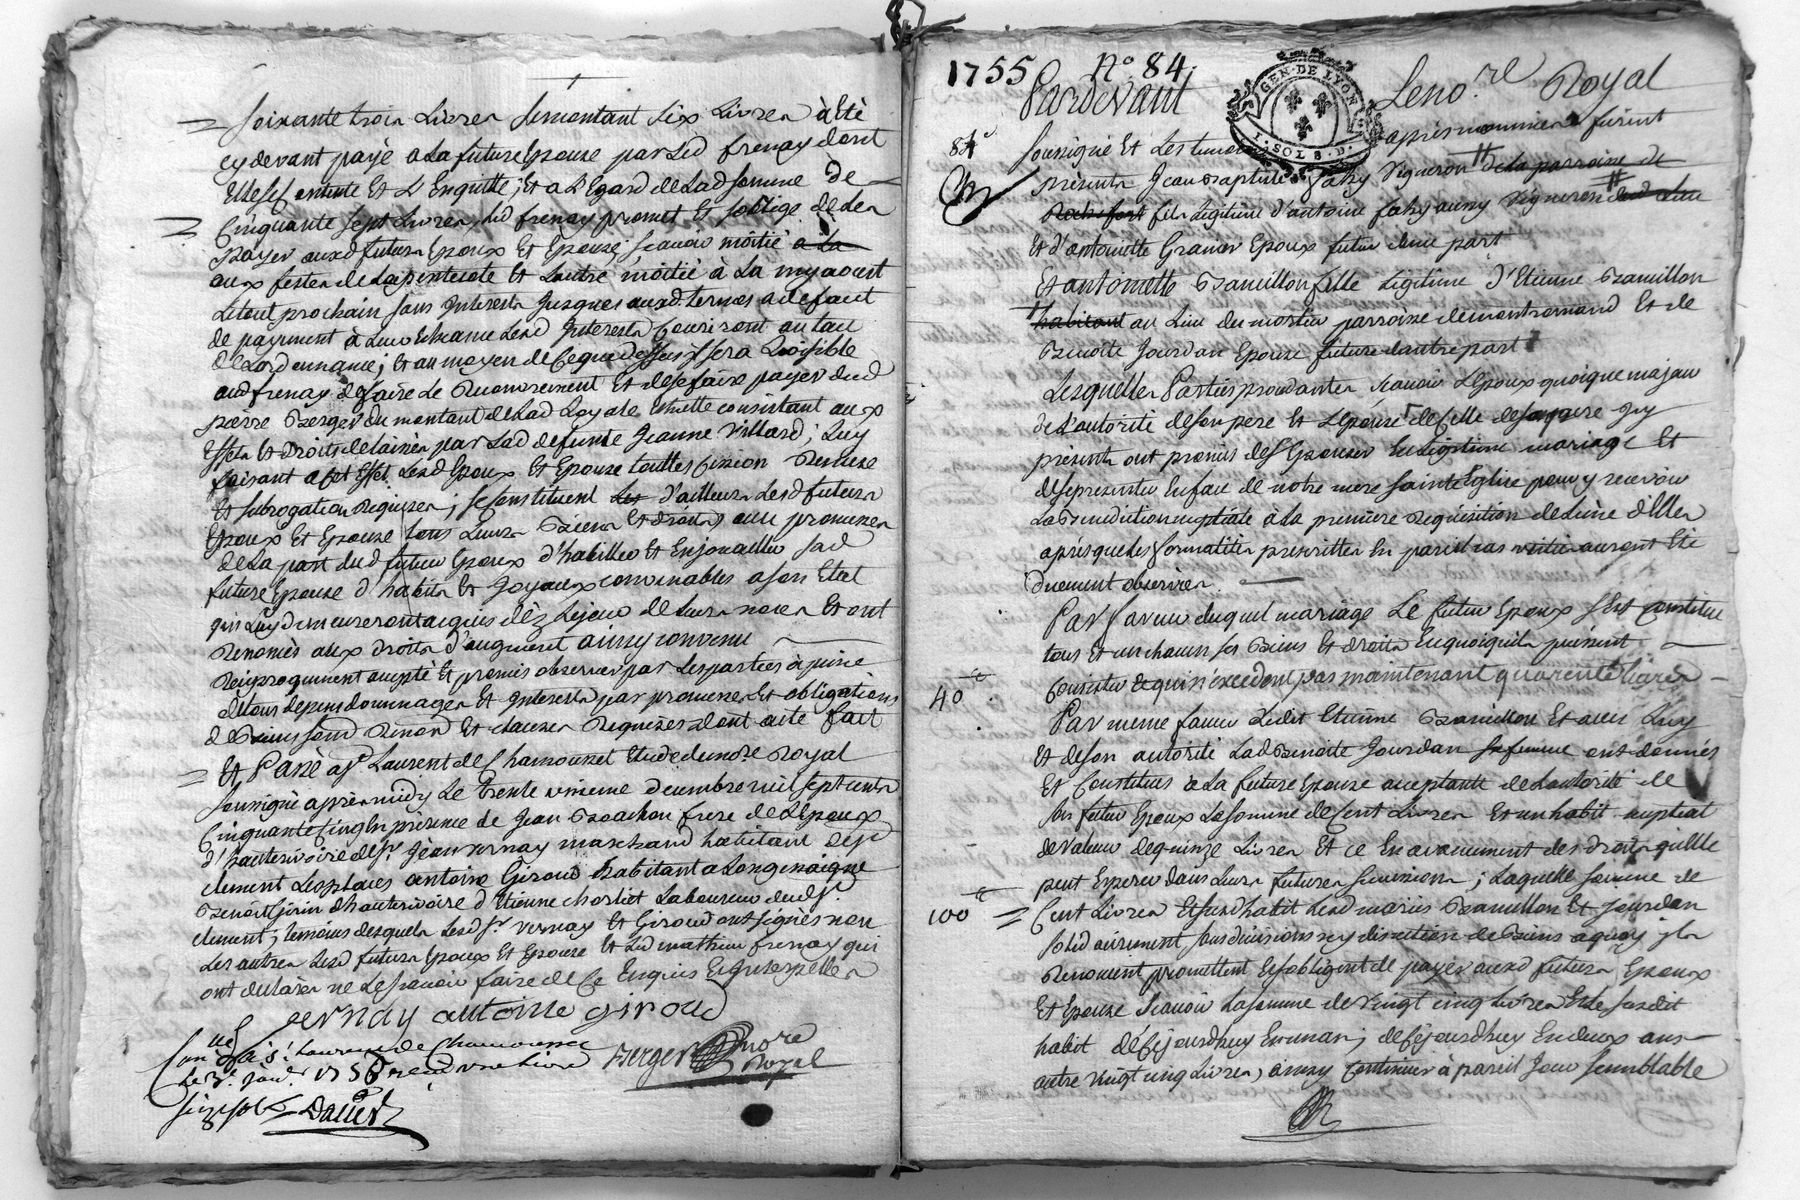 soixante trois Livres le montant six Livres à Eté
cy devant payé a La future Epouse par Led frenay dont
Elle se contente Et L'En quitte; Et a L'Egard de Lad somme de
Cinquante sept Livres Led frenay promet Et soblige de Les
payer auxd futurs Epoux Et Epouse; scavoir moitié a La
aux festes de La pentecote Et Lautre moitié à La my aoust
Le tout prochain sans Interests Jusques auxd termes a defaut
de payement à Leur Echeance Lesd Interests Couriront au taux
de Lordonnance; Et au moyen de Ce que dessus Il sera Loisible
aud frenay de faire Le Recouvrement Et de se faire payer dud
pierre Berger du montant de Lad Loyale Echutte consistant aux
Effets Et Droits delaissés par Lad defunte Jeanne Villard; Luy
faisant a Cet Effet Lesd Epoux Et Epouse touttes Cession Remise
Et subrogation Requises; se Constituent Les d'ailleurs Lesd futurs
Epoux Et Epouse tous Leurs Biens Et droits avec promesses
de La part dud futur Epoux d'habiller Et Enjouailler sad
future Epouse d'habits Et Joyaux convenables a son Etat
qui Luy demeureront acquis dèz Lejour de Leurs noces Et ont
Renoncés aux droits d'augment ainsy convenu
Reciproquement accepté Et promis observer par Les parties à peine
de tous depens dommages Et Interests par promesses Et obligations
de Renonciation Et clauses Requises dont acte fait
Et Passé a St Laurent de Chamousset Etude du nore Royal
soussigné après midy Le trente unieme decembre mil sept cents
Cinquante Cinq En présence de Jean Brachon frere de L'Epoux
d'hauterivoire de sr Jean vernay marchand habitant de st
clement Les places antoine Giroud habitant a Longessaigne
Benoit Girin d'hauterivoire d'Etienne Chorliet Laboureur dud st
clement; temoins desquels Lesd srs vernay Et Giroud ont signés non
Les autres Lesd futurs Epoux Et Epouse Et Led mathieu frenay qui
ont declarés ne Le scavoir faire de Ce Enquis Et Interpellés
vernay antoine giroud
Conllé à St Laurent de Chamousset
Le 3e Janv. 1756 Berger nore Royal
sols Daved
1755 No 84.
GEN. DE LYON
1. SOL 8. D.
Pardevant Le nore Royal
84e soussigné Et Les temoins après nommés furent
présents Jean Baptiste fahy Vigneron de La parroisse de
Rochefort fils Legitime d'antoine fahy aussy vigneron dud Lieu
Et d'antoinette Granier Epoux futur d'une part
Et antoinette Bamillon fille Legitime d'Etienne Bamillon
habitant au Lieu du mortier parroisse de montromand Et de
Benoite Jourdan Epouse future d'autre part
Lesquelles Parties procedantes scavoir L'Epoux quoique majeur
de L'autorité de son pere Et L'Epouse de Celle de son pere Icy
présents ont promis de s'Epouser En Legitime mariage Et
de se presenter En face de notre mere sainte Eglise pour y recevoir
La Benediction nuptiale à La premiere Requisition de L'une d'Elles
aprés que Les formalités prescrittes En pareil cas auront Eté
duement observées
Par faveur duquel mariage Le futur Epoux s'Est Constitué
tous Et un chacun ses Biens Et droits En quoi qu'ils puissent
40 Consister Et qui n'excedent pas maintenant quarente Livres
Par meme faveur Ledit Etienne Bamillon Et avec Luy
Et de son autorité Lad Benoite Jourdan sa femme ont donnés
Et Constitués à La future Epouse acceptante de L'autorité de
son futur Epoux La somme de Cent Livres Et un habit nuptial
de valeur de quinze Livres Et ce En avancement des droits qu'Elle
peut Esperer dans Leurs futures successions; Laquelle somme de
100 Cent Livres Et sus d habit Lesd mariés Bamillon Et Jourdan
solidairement sans division ny discution de Biens a quoy Ils
Renoncent promettent Et s'obligent de payer auxd futurs Epoux
Et Epouse scavoir La somme de vingt cinq Livres Et le susdit
habit de Cejourdhuy En un an; de Cejourdhuy En deux ans
autre vingt cinq Livres, ainsy Continuer à pareil Jour semblable